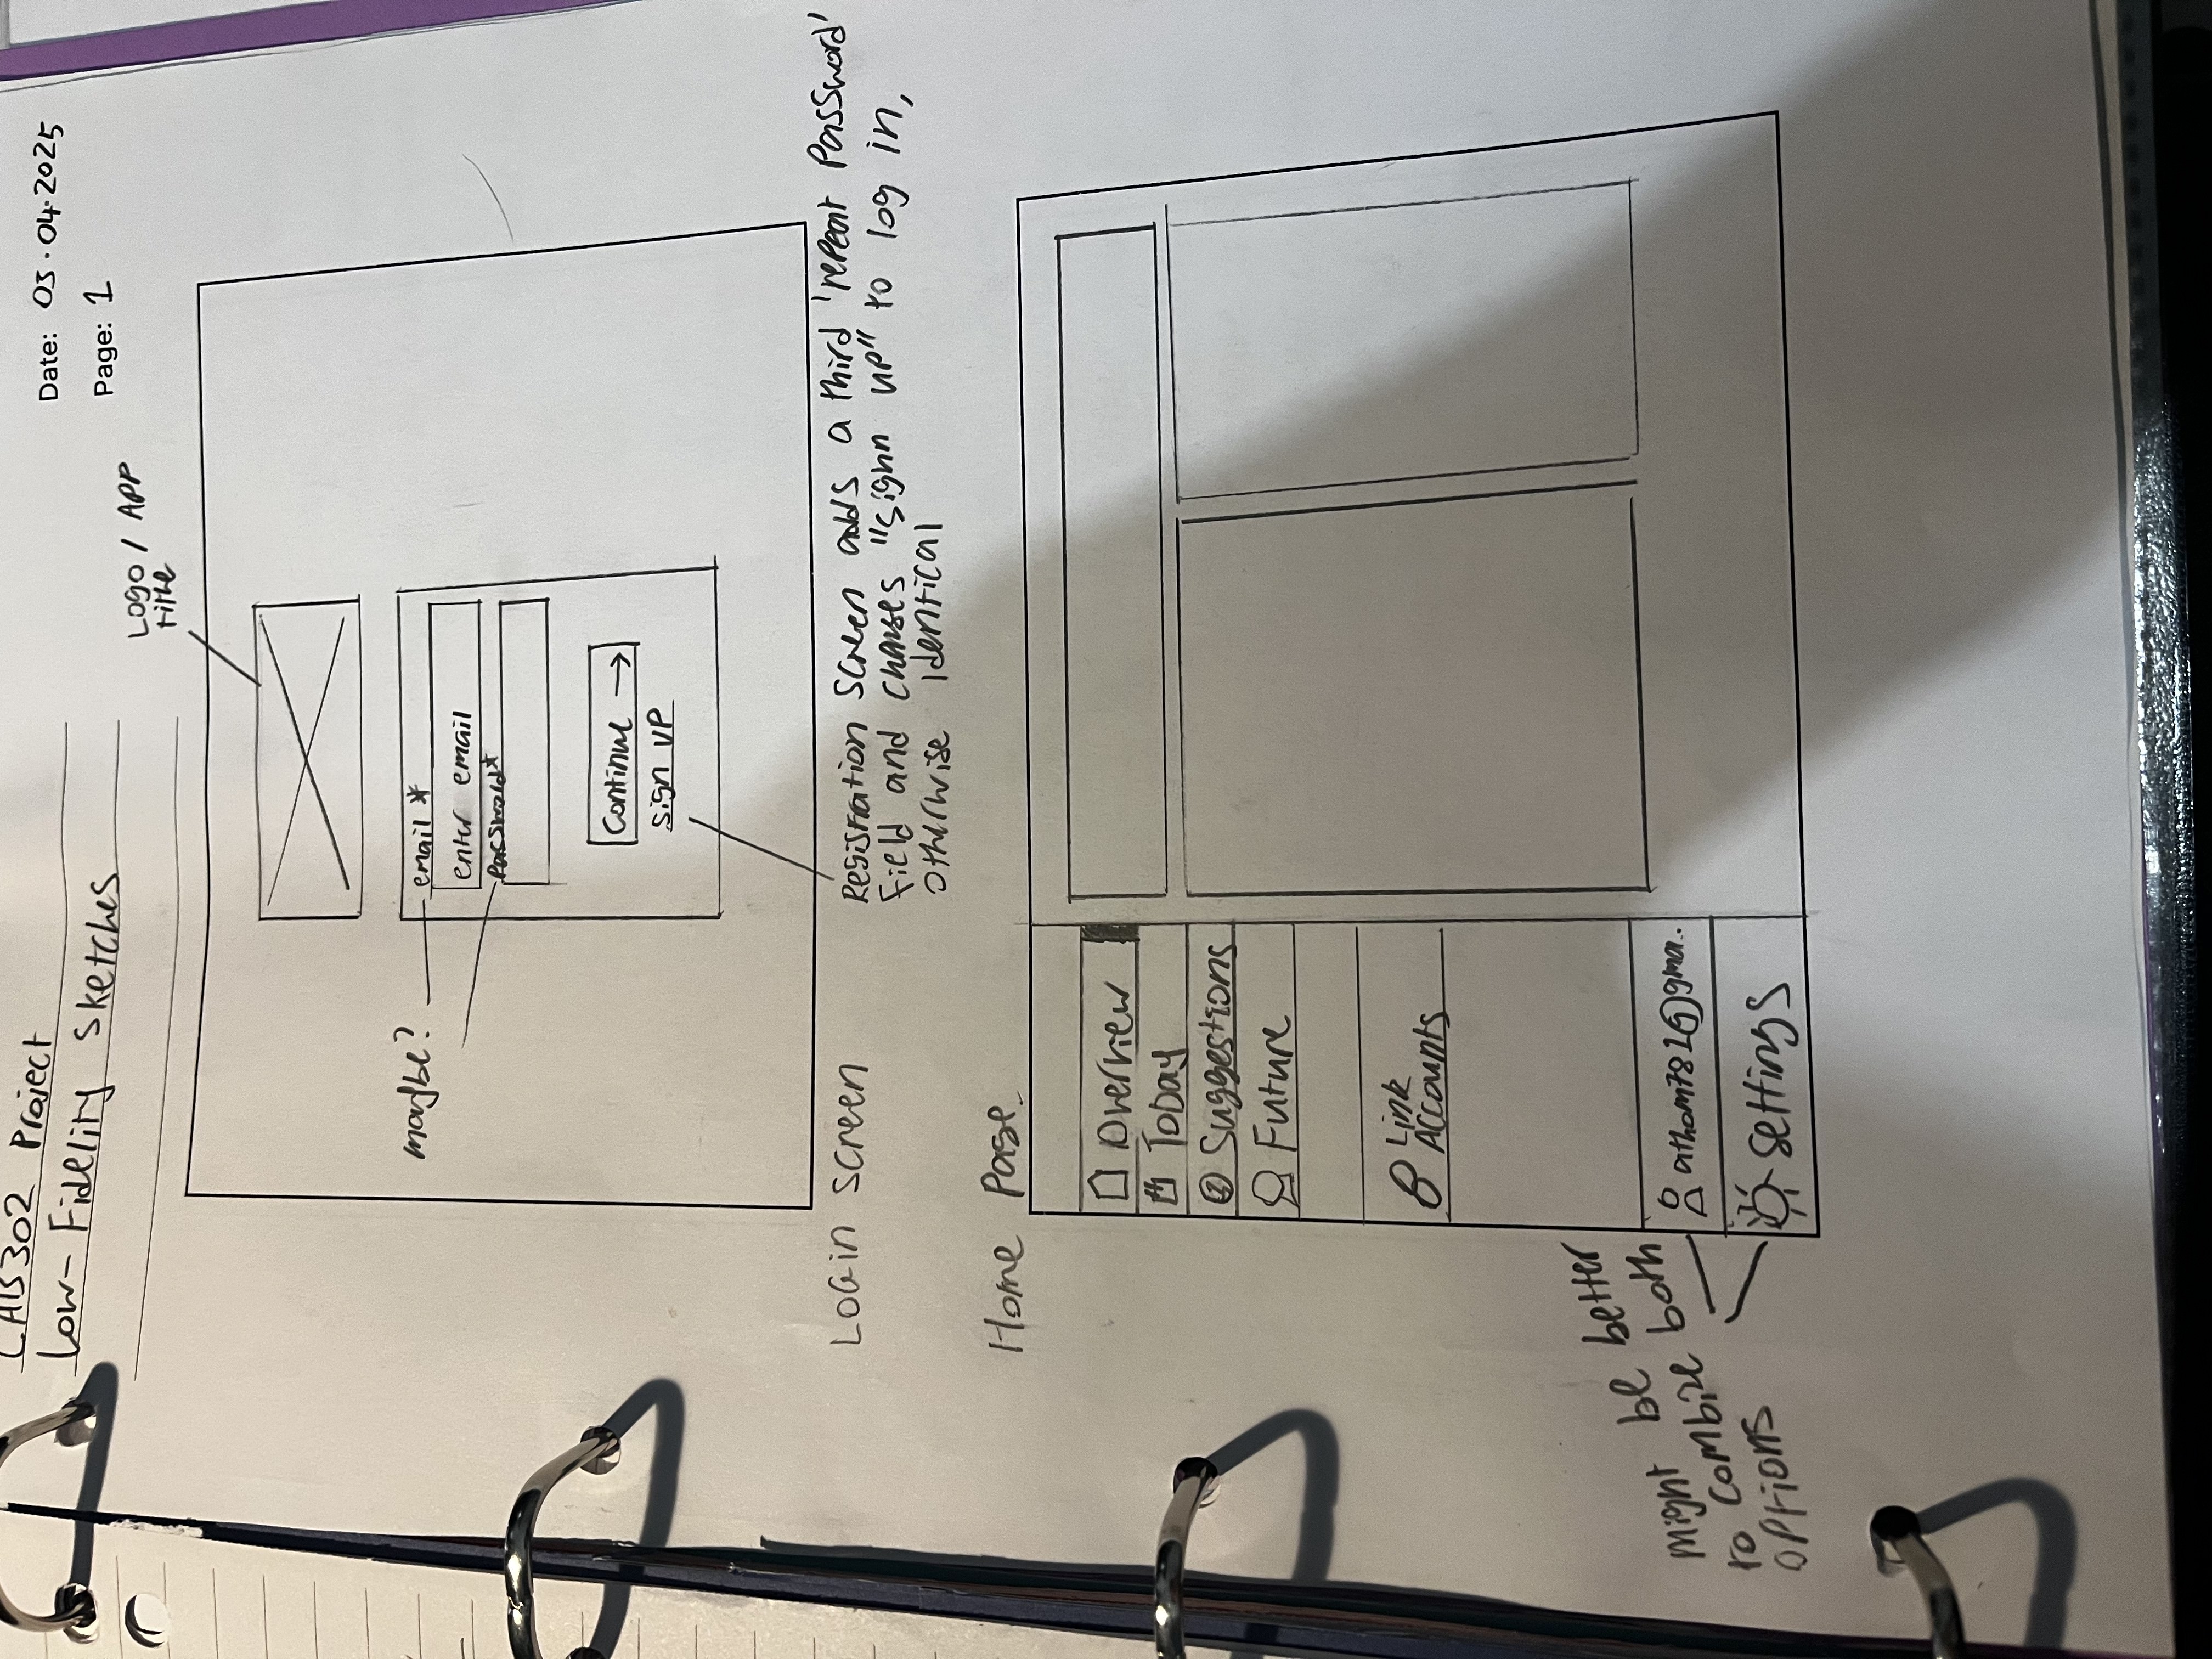 CAB302 Project
Low-Fidelity Sketches
Date: 03.04.2025
Page: 1
Logo / APP
title
maybe?
email *
enter email
Password*
Continue →
sign UP
Login screen
Registration Screen adds a third 'repeat Password'
Field and changes "Sighn up" to log in,
otherwise identical
Home Page.
Overview
Today
Suggestions
Future
Link
Accounts
might be better
to combize both
options
atham781@gma..
settings